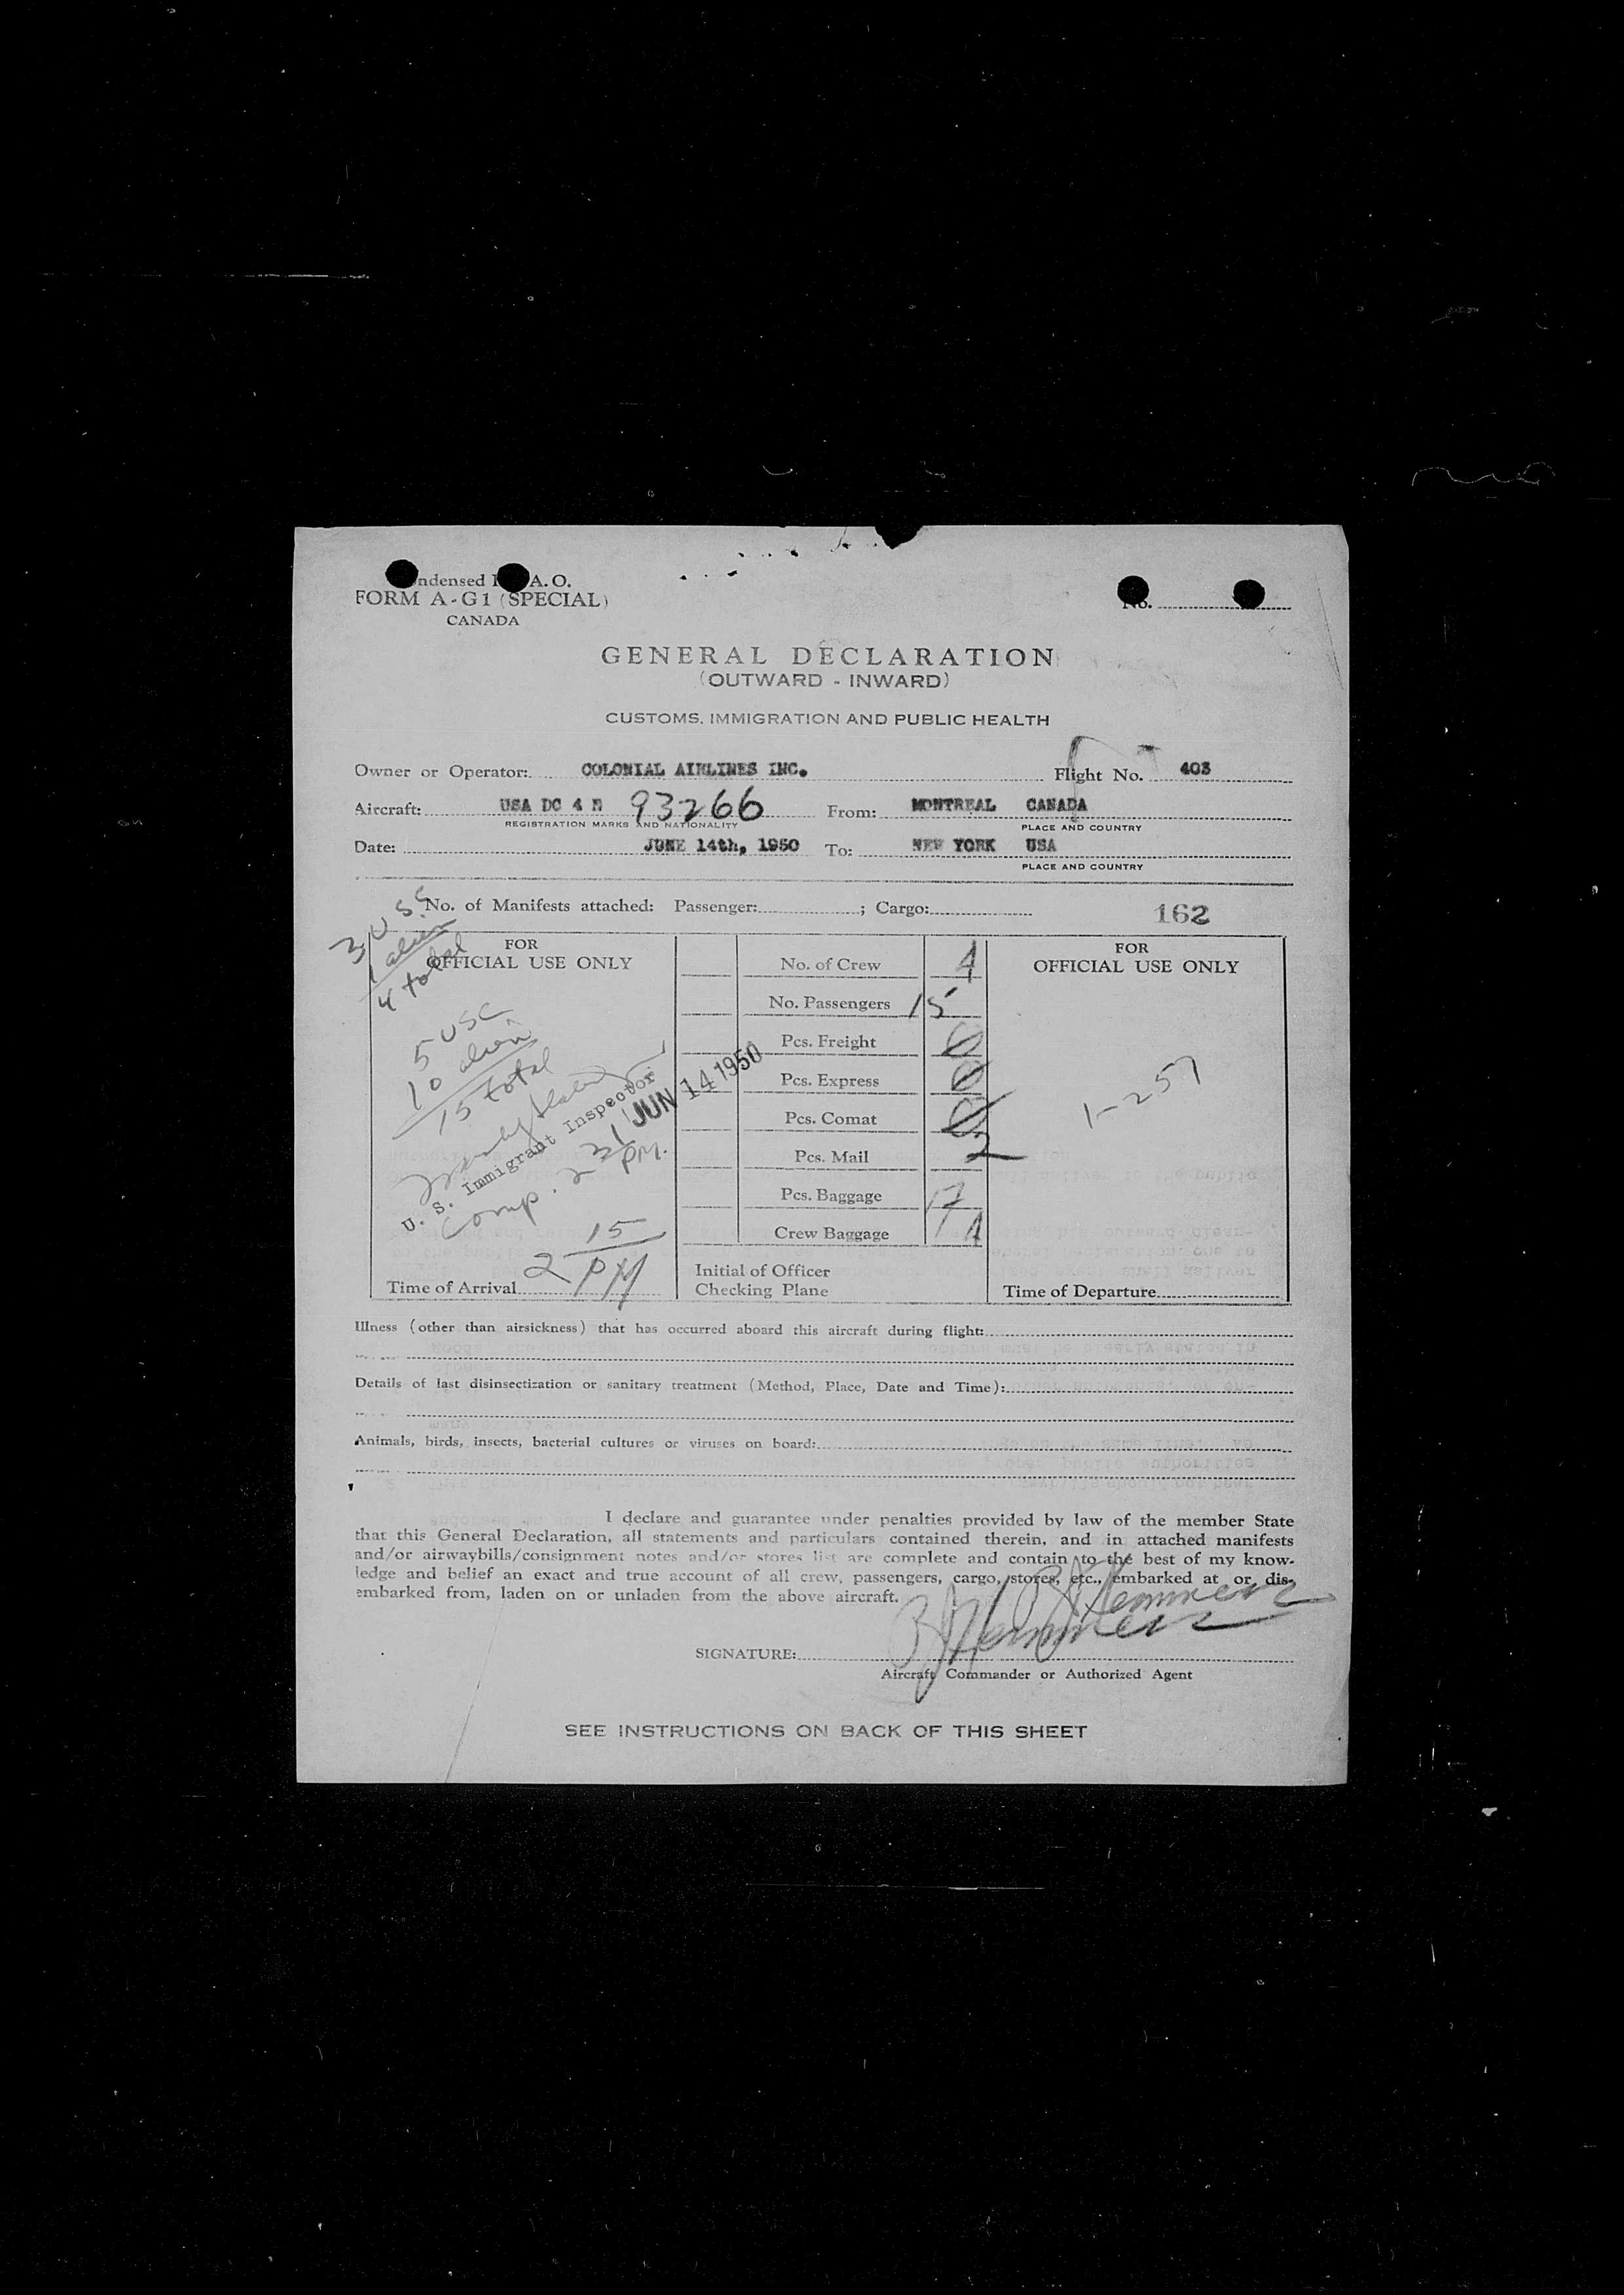 ndensed I A. O.
FORM A-G1 (SPECIAL)
CANADA
No.
GENERAL DECLARATION
(OUTWARD - INWARD)
CUSTOMS, IMMIGRATION AND PUBLIC HEALTH
Owner or Operator: COLONIAL AIRLINES INC. Flight No. 403
Aircraft: USA DC 4 N 93266 From: MONTREAL CANADA
REGISTRATION MARKS AND NATIONALITY PLACE AND COUNTRY
Date: JUNE 14th, 1950 To: NEW YORK USA
PLACE AND COUNTRY
No. of Manifests attached: Passenger: ; Cargo: 162
3 U.S.C
1 alien
4 total
FOR
OFFICIAL USE ONLY
5 USC
10 alien
15 total
U. S. Immigrant Inspector
JUN 14 1950
Comp. 2 31 PM.
2 15 PM
Time of Arrival
No. of Crew 4
No. Passengers 15
Pcs. Freight 0
Pcs. Express 0
Pcs. Comat 0
Pcs. Mail 2
Pcs. Baggage 17
Crew Baggage 4
Initial of Officer
Checking Plane
FOR
OFFICIAL USE ONLY
1-257
Time of Departure
Illness (other than airsickness) that has occurred aboard this aircraft during flight:
Details of last disinsectization or sanitary treatment (Method, Place, Date and Time):
Animals, birds, insects, bacterial cultures or viruses on board:
I declare and guarantee under penalties provided by law of the member State
that this General Declaration, all statements and particulars contained therein, and in attached manifests
and/or airwaybills/consignment notes and/or stores list are complete and contain to the best of my know-
ledge and belief an exact and true account of all crew, passengers, cargo, stores, etc., embarked at or dis-
embarked from, laden on or unladen from the above aircraft.
SIGNATURE:
Aircraft Commander or Authorized Agent
SEE INSTRUCTIONS ON BACK OF THIS SHEET